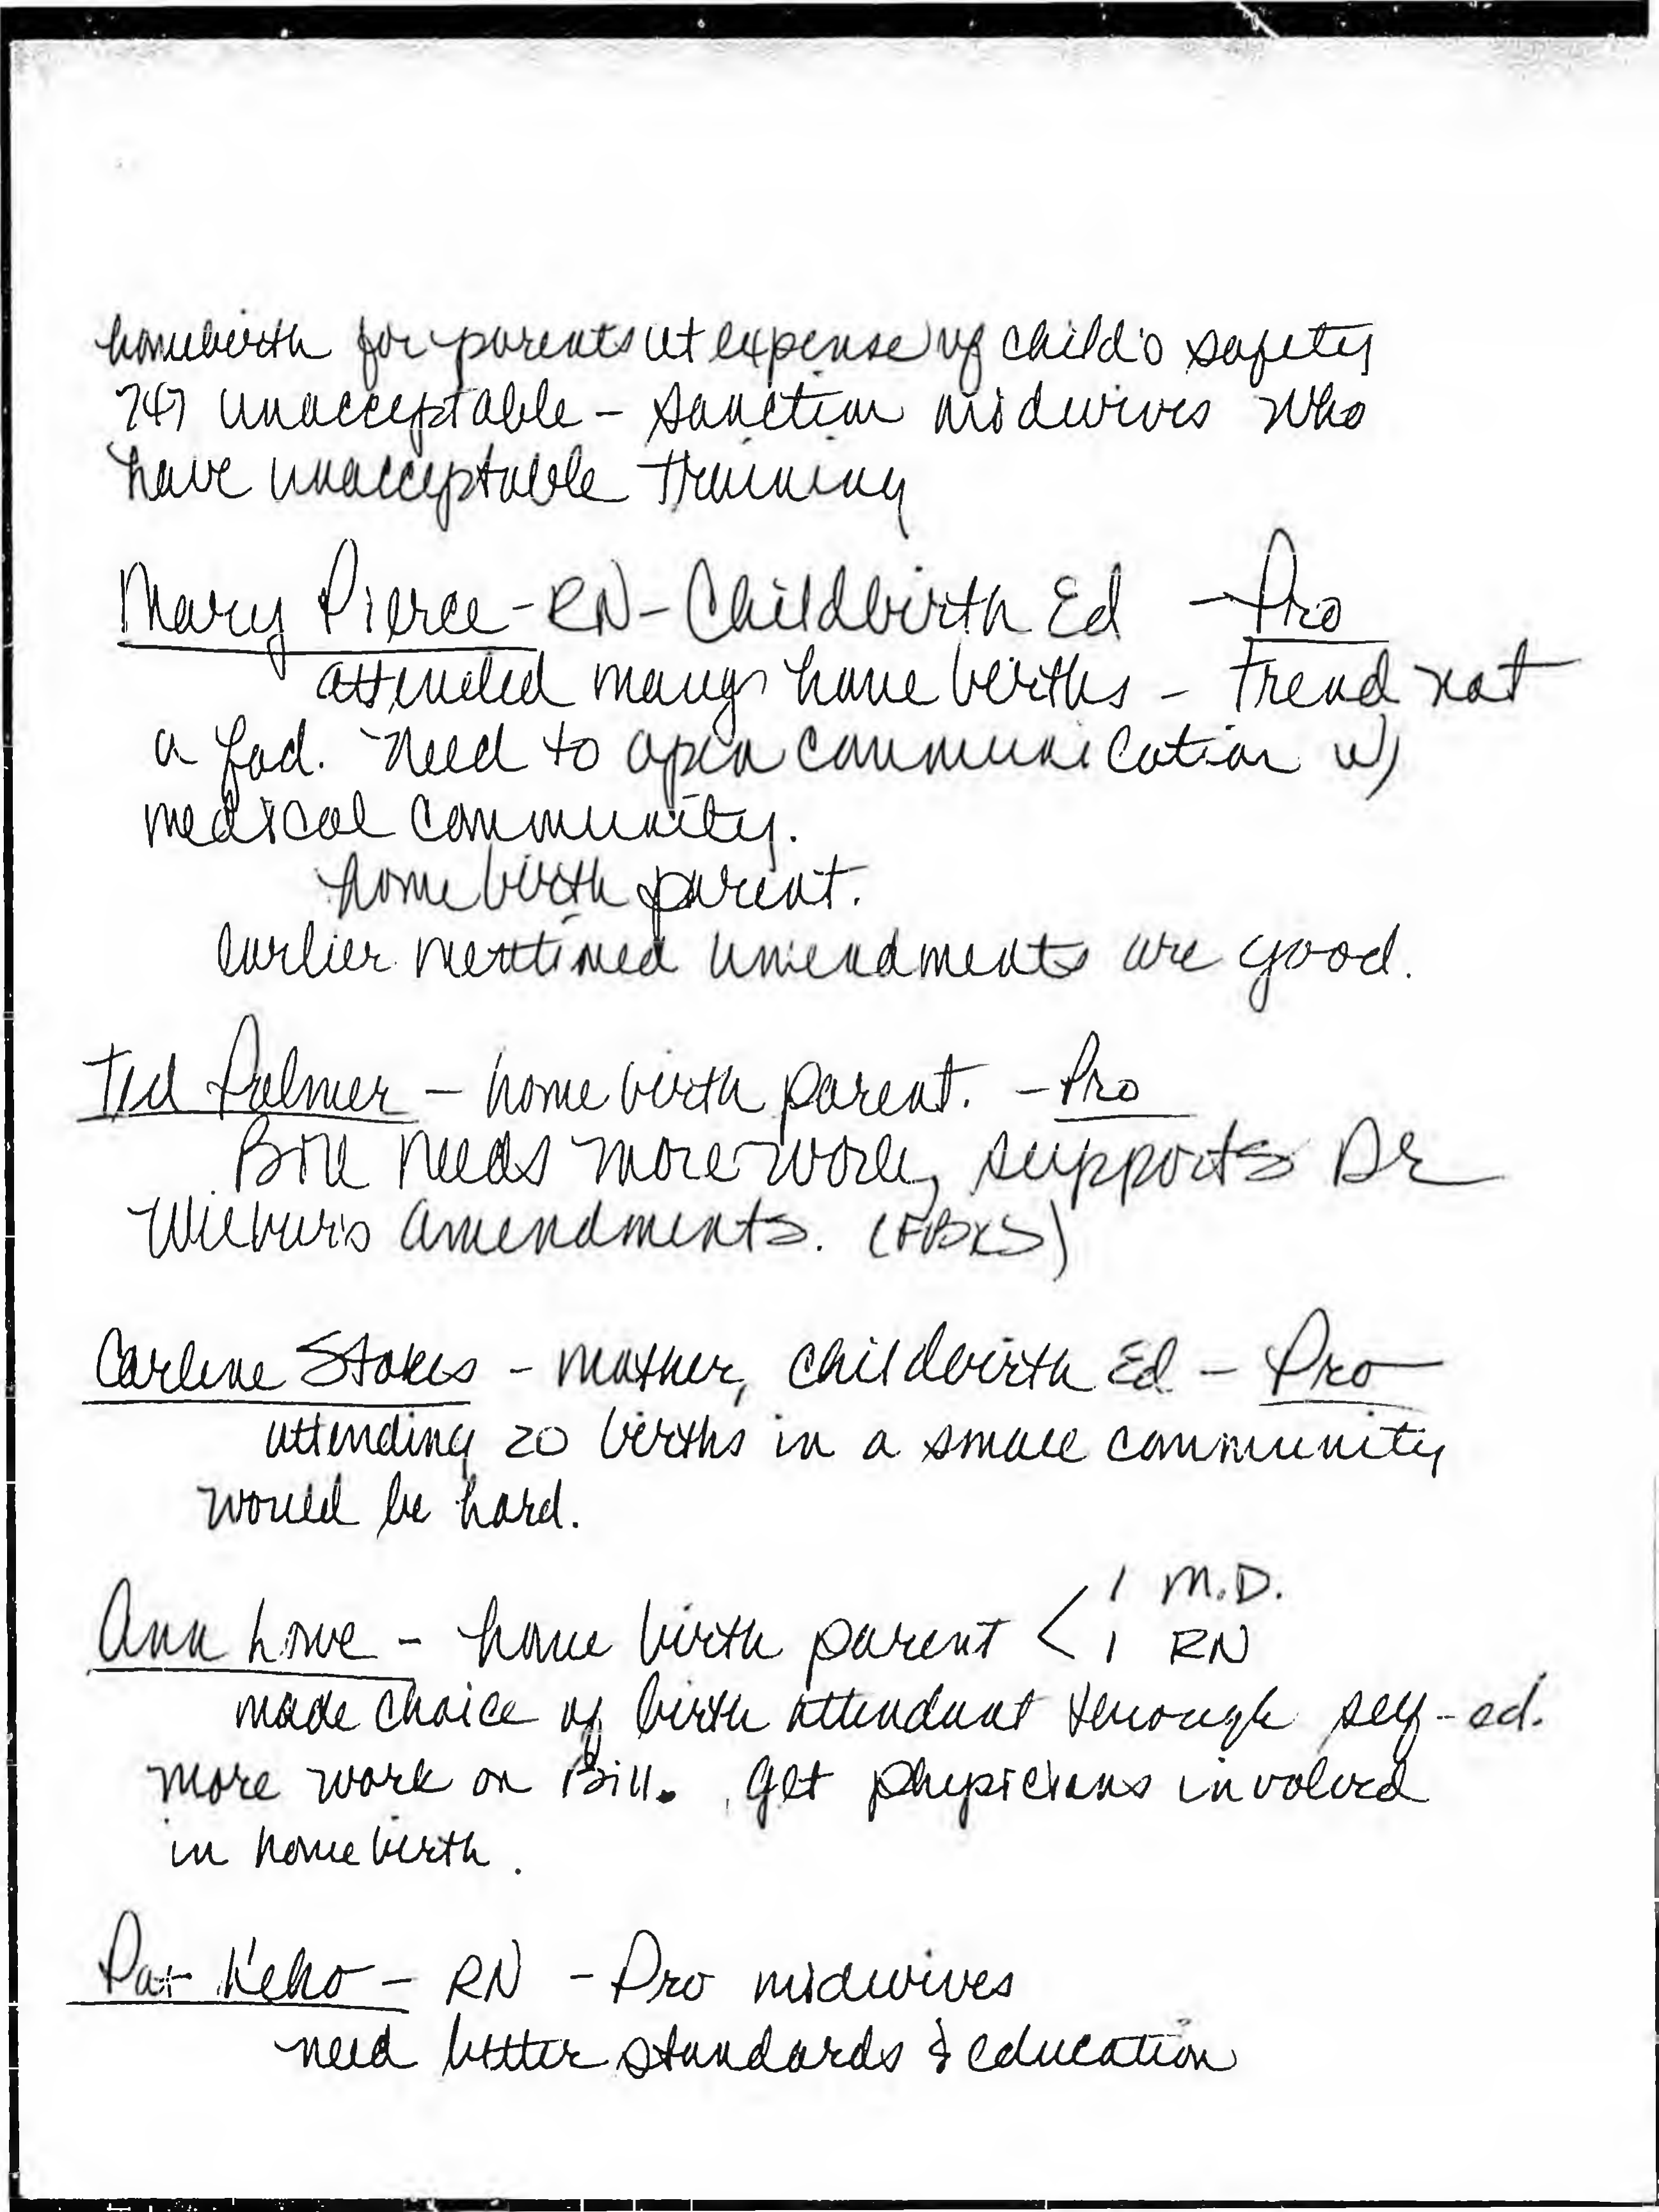 homebirth for parents at expense of child's safety
747 unacceptable - sanction midwives who
have unacceptable training
Mary Pierce - RN - Childbirth Ed - Pro
attended many home births - trend not
a fad. Need to open communication w/
medical community.
home birth parent.
earlier mentioned amendments are good.
Ted Palmer - home birth parent. - Pro
Bill needs more work, supports Dr
Wilbur's amendments. (FBKS)
Carlene Stokes - mother, childbirth Ed - Pro
attending 20 births in a small community
would be hard.
1 M.D.
Ann Lowe - home birth parent < 1 RN
made choice of birth attendant through self-ed.
more work on Bill. Get physicians involved
in home birth.
Pat Keho - RN - Pro midwives
need better standards & education